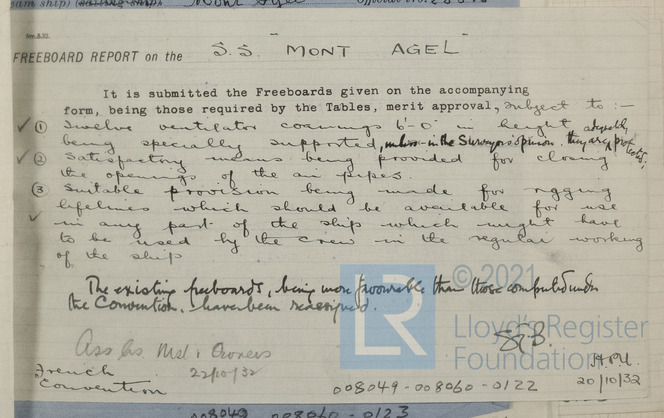 Mont Agel
FREEBOARD REPORT on the S.S. "MONT AGEL"
It is submitted the Freeboards given on the accompanying
form, being those required by the Tables, merit approval, subject to :—
① Twelve ventilator coamings 6'-0" in height adequately
being specially supported, unless in the Surveyor's opinion, they are protected.
② Satisfactory means being provided for closing
the openings of the air pipes.
③ Suitable provision being made for rigging
lifelines which should be available for use
in any part of the ship which might have
to be used by the crew in the regular working
of the ship
The existing freeboards, being more favourable than those computed under
the Convention, have been reassigned.
© 2021
LR
Lloyd's Register
Foundation
Owners
22/10/32
French
Convention
20/10/32
008049-008060-0122
008049-008060-0123